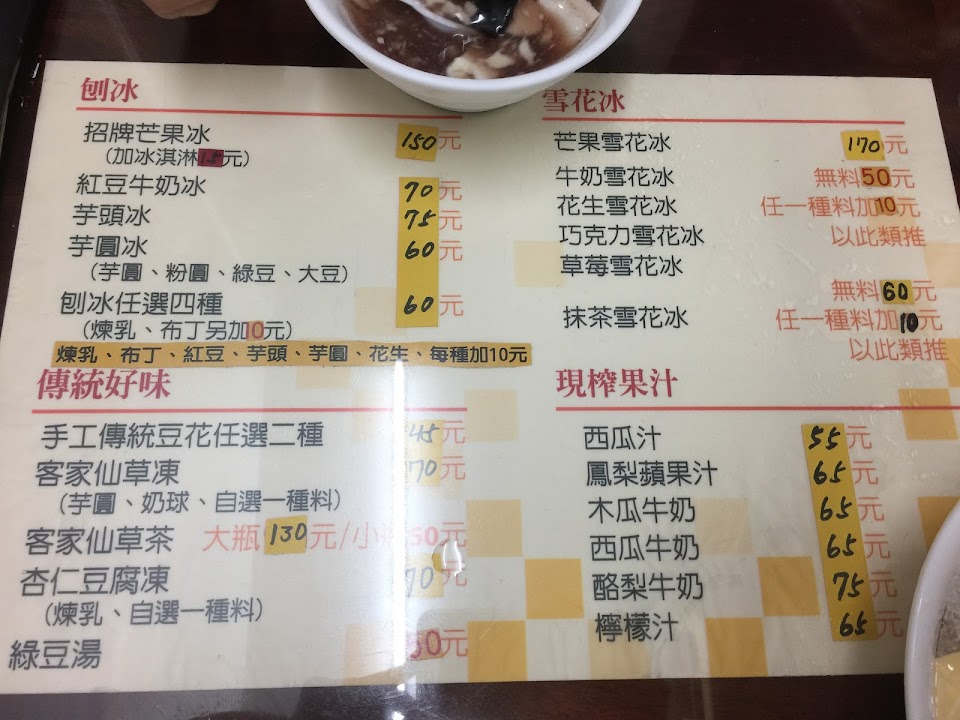 刨冰
招牌芒果冰 150元
(加冰淇淋15元)
紅豆牛奶冰 70元
芋頭冰 75元
芋圓冰 60元
(芋圓、粉圓、綠豆、大豆)
刨冰任選四種 60元
(煉乳、布丁另加10元)
煉乳、布丁、紅豆、芋頭、芋圓、花生、每種加10元
傳統好味
手工傳統豆花任選二種 45元
客家仙草凍 70元
(芋圓、奶球、自選一種料)
客家仙草茶 大瓶130元/小 50元
杏仁豆腐凍 70元
(煉乳、自選一種料)
綠豆湯 50元
雪花冰
芒果雪花冰 170元
牛奶雪花冰 無料50元
花生雪花冰 任一種料加10元
巧克力雪花冰 以此類推
草莓雪花冰
無料60元
抹茶雪花冰 任一種料加10元
以此類推
現榨果汁
西瓜汁 55元
鳳梨蘋果汁 65元
木瓜牛奶 65元
西瓜牛奶 65元
酪梨牛奶 75元
檸檬汁 65元